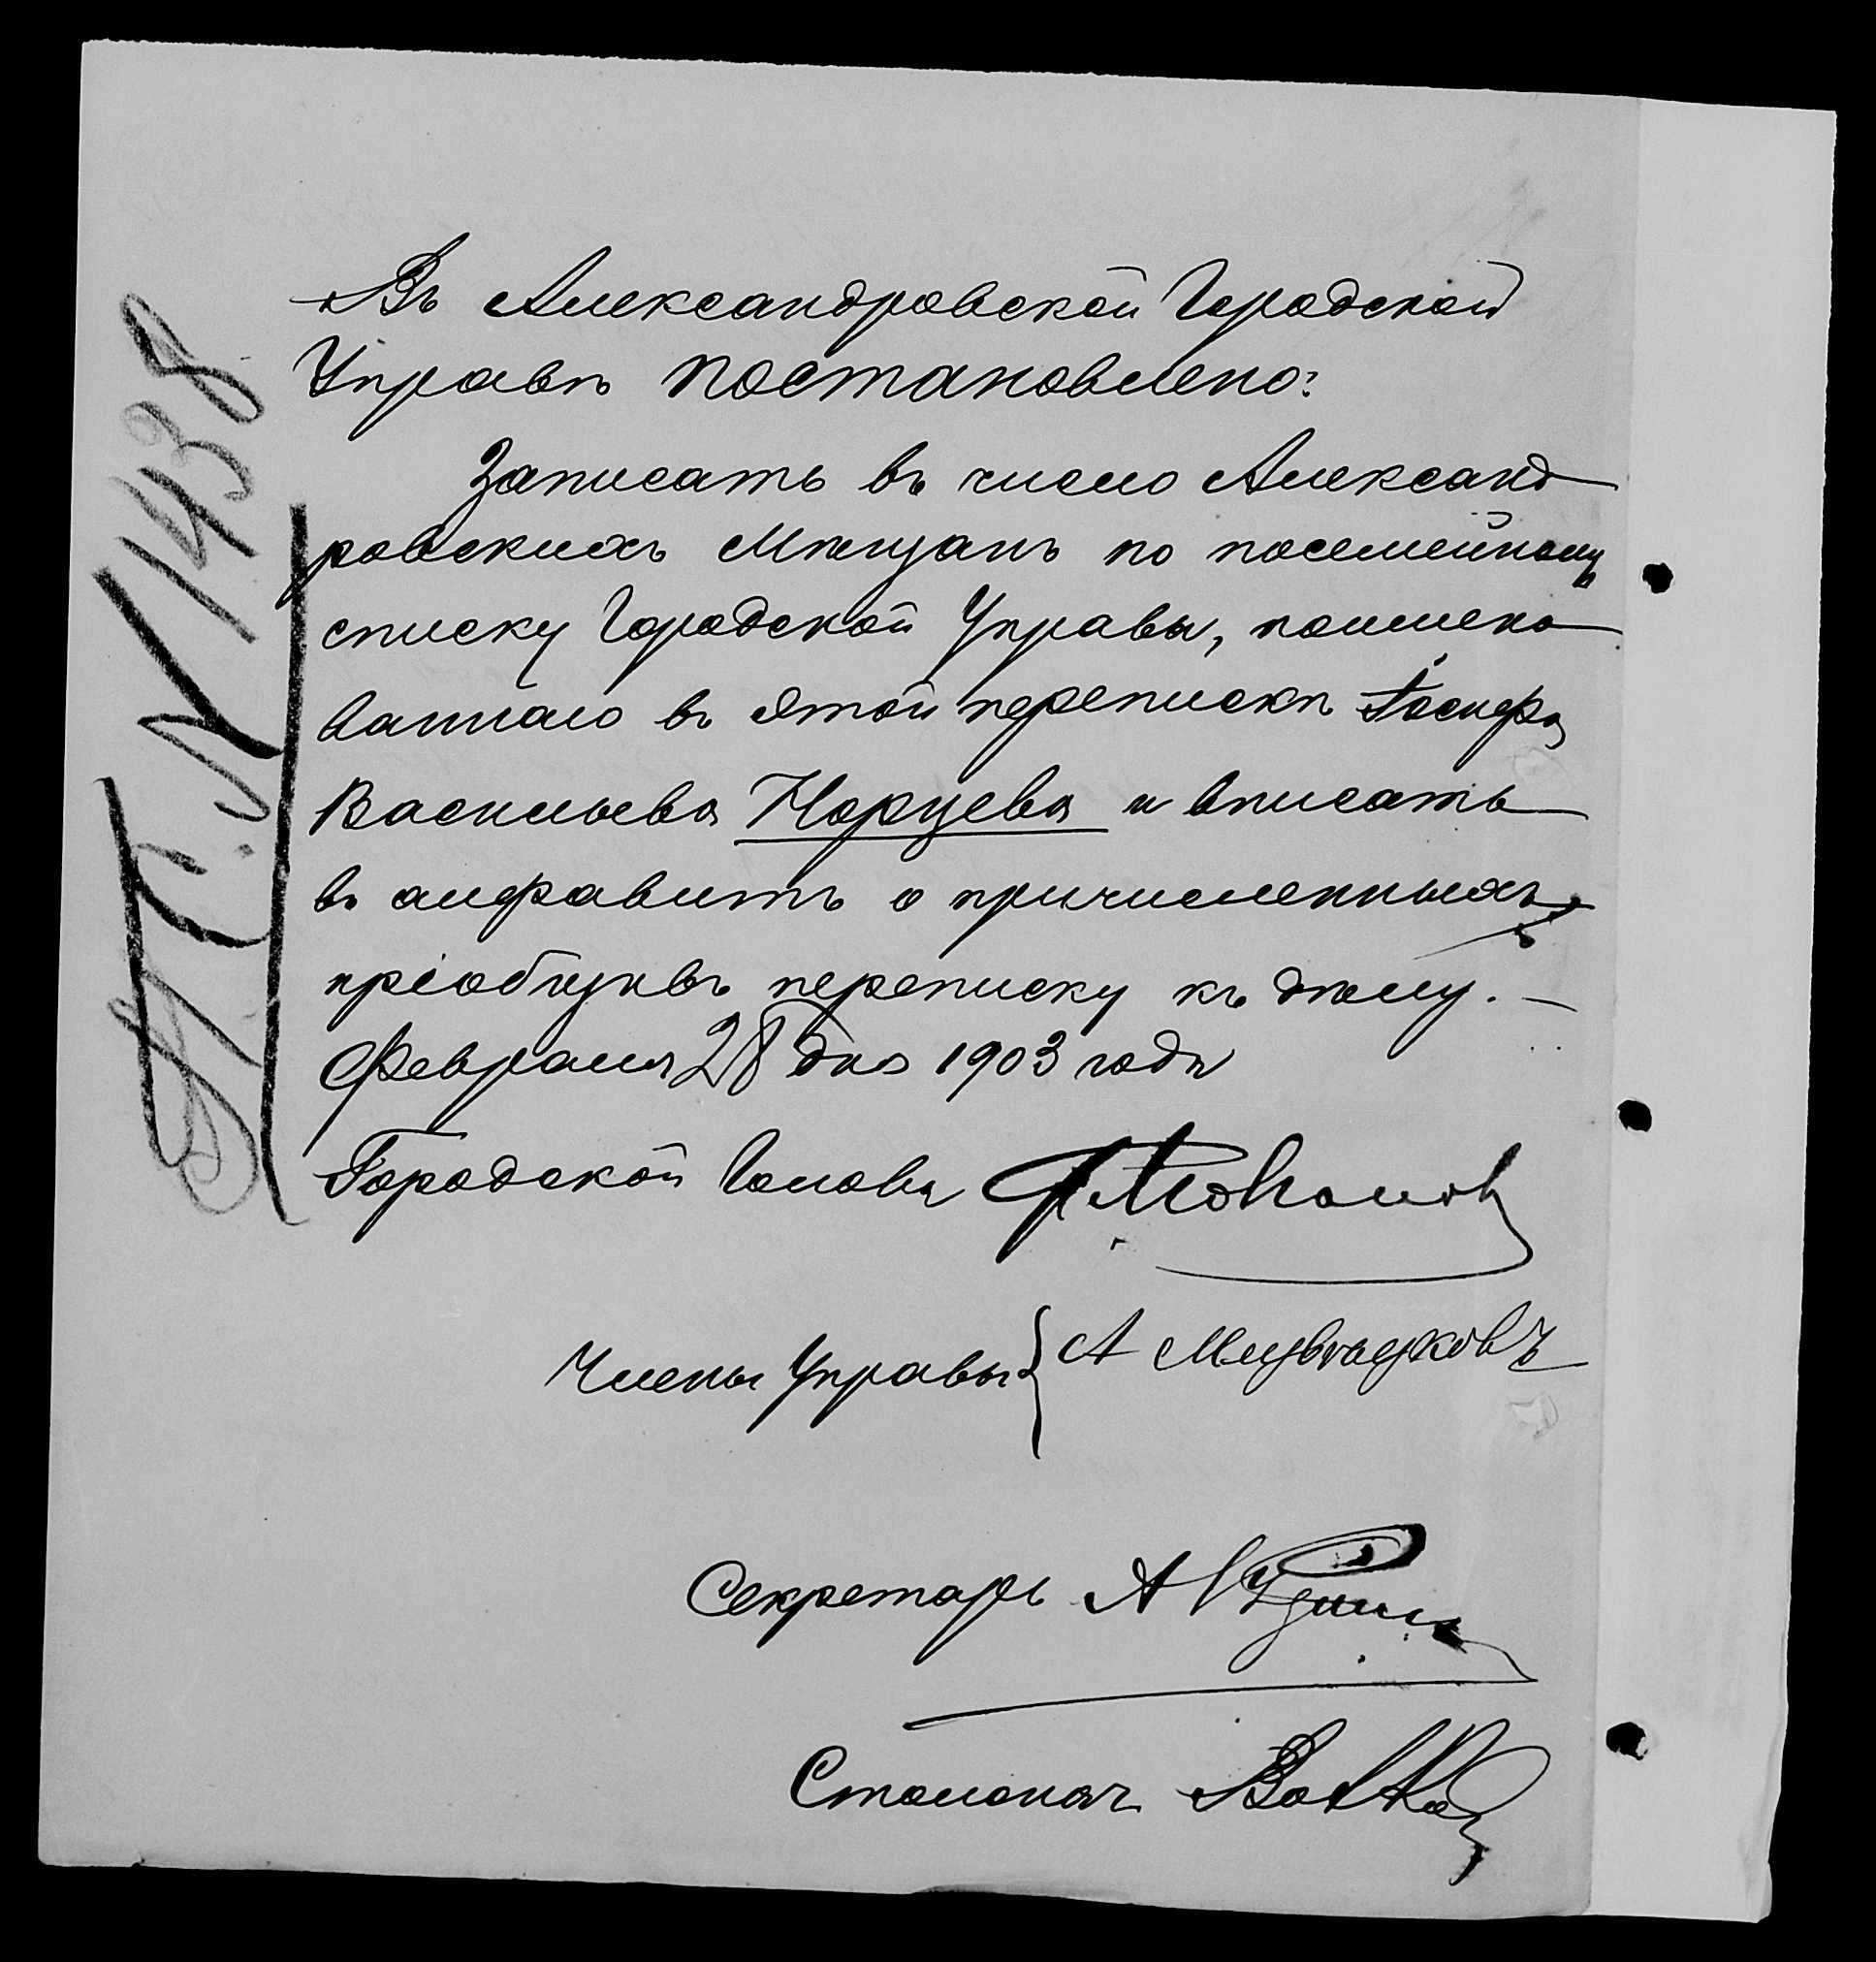 Въ Александровской Городской
Управѣ постановлено:
Записать въ число Александ
ровскихъ Мѣщанъ по посемейному
списку Городской Управы, поимено
ваннаго въ этой перепискѣ Іосифа
Васильева Норцева и вписать
въ алфавитъ о причисленныхъ,
пріобщивъ переписку къ дѣлу. —
Февраля 28 дня 1903 года
Городской Голова
Члены Управы
Секретарь А
Столонач.
№ 1438